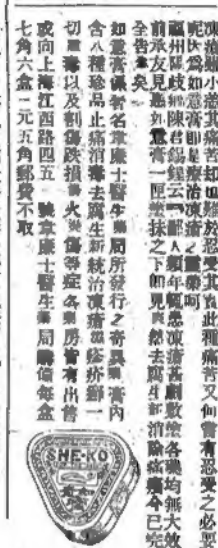 凍瘡雖小恙其痛苦却如難於忍受其實此種痛苦又何嘗有忍受之必要
呢因爲如意膏卽是療治凍瘡之靈藥呵
福州陳君錫鏗云鄙人頻年輒患凍瘡甚劇敷塗各藥均無大效
前承友見惠如意膏一匣塗抹之下卽見爽然去腐生新消除痛癢今已完
全告矣
如意膏係著名韋廉士醫生藥局所發行之奇異膏內
含八種珍品止痛消毒去腐生新統治凍瘡疥癬
切毒以及割傷跌損火傷等症各藥房皆有出售
或向上海江西路四五號韋廉士醫生藥局購每盒
七角六盒二元五角郵費不取
SHE-KO
如意膏